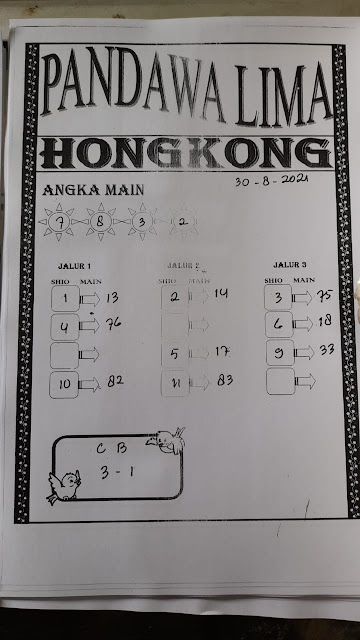 PANDAWA LIMA
HONGKONG
ANGKA MAIN
30-8-2021
7 8 3 2
JALUR 1 JALUR 2 JALUR 3
SHIO MAIN SHIO MAIN SHIO MAIN
1 13 2 14 3 75
4 76 6 18
5 17 9 33
10 82 11 83
C B
3 - 1